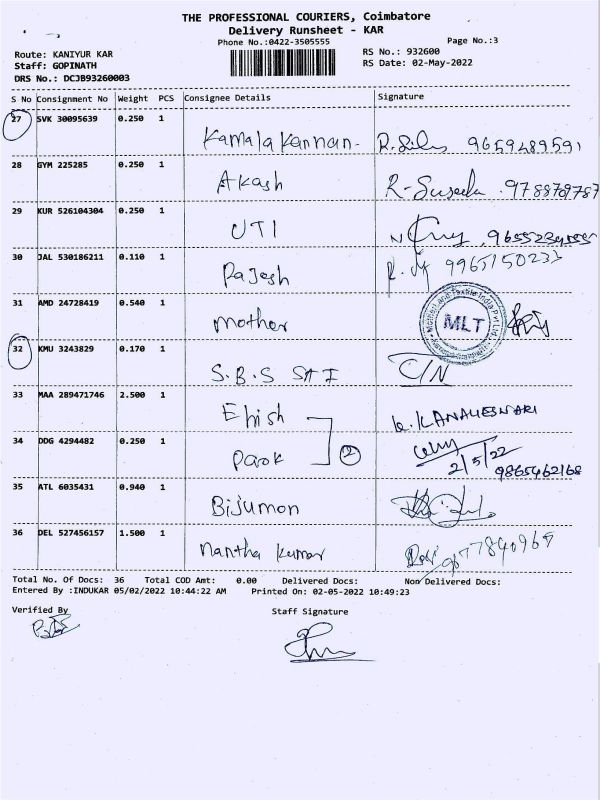 THE PROFESSIONAL COURIERS, Coimbatore
Delivery Runsheet - KAR
Phone No.:0422-3505555
Page No.:3
Route: KANIYUR KAR
RS No.: 932600
Staff: GOPINATH
RS Date: 02-May-2022
DRS No.: DCJB93260003
S No Consignment No Weight PCS Consignee Details Signature
27 SVK 30095639 0.250 1
Kamala Kannan- 9659289591
28 GYM 225285 0.250 1
Akash R-Suseela .9788709787
29 KUR 526104304 0.250 1
UTI
30 JAL 530186211 0.110 1
Rajesh 9965150233
31 AMD 24728419 0.540 1
mother MLT
32 KMU 3243829 0.170 1
S.B.S SAI C/N
33 MAA 289471746 2.500 1
K. KANAKESWARI
34 DDG 4294482 0.250 1
2
2/5/22
9865462168
35 ATL 6035431 0.940 1
Bijumon
36 DEL 527456157 1.500 1
Nantha Kumar
Total No. Of Docs: 36 Total COD Amt: 0.00 Delivered Docs: Non Delivered Docs:
Entered By :INDUKAR 05/02/2022 10:44:22 AM Printed On: 02-05-2022 10:49:23
Verified By Staff Signature